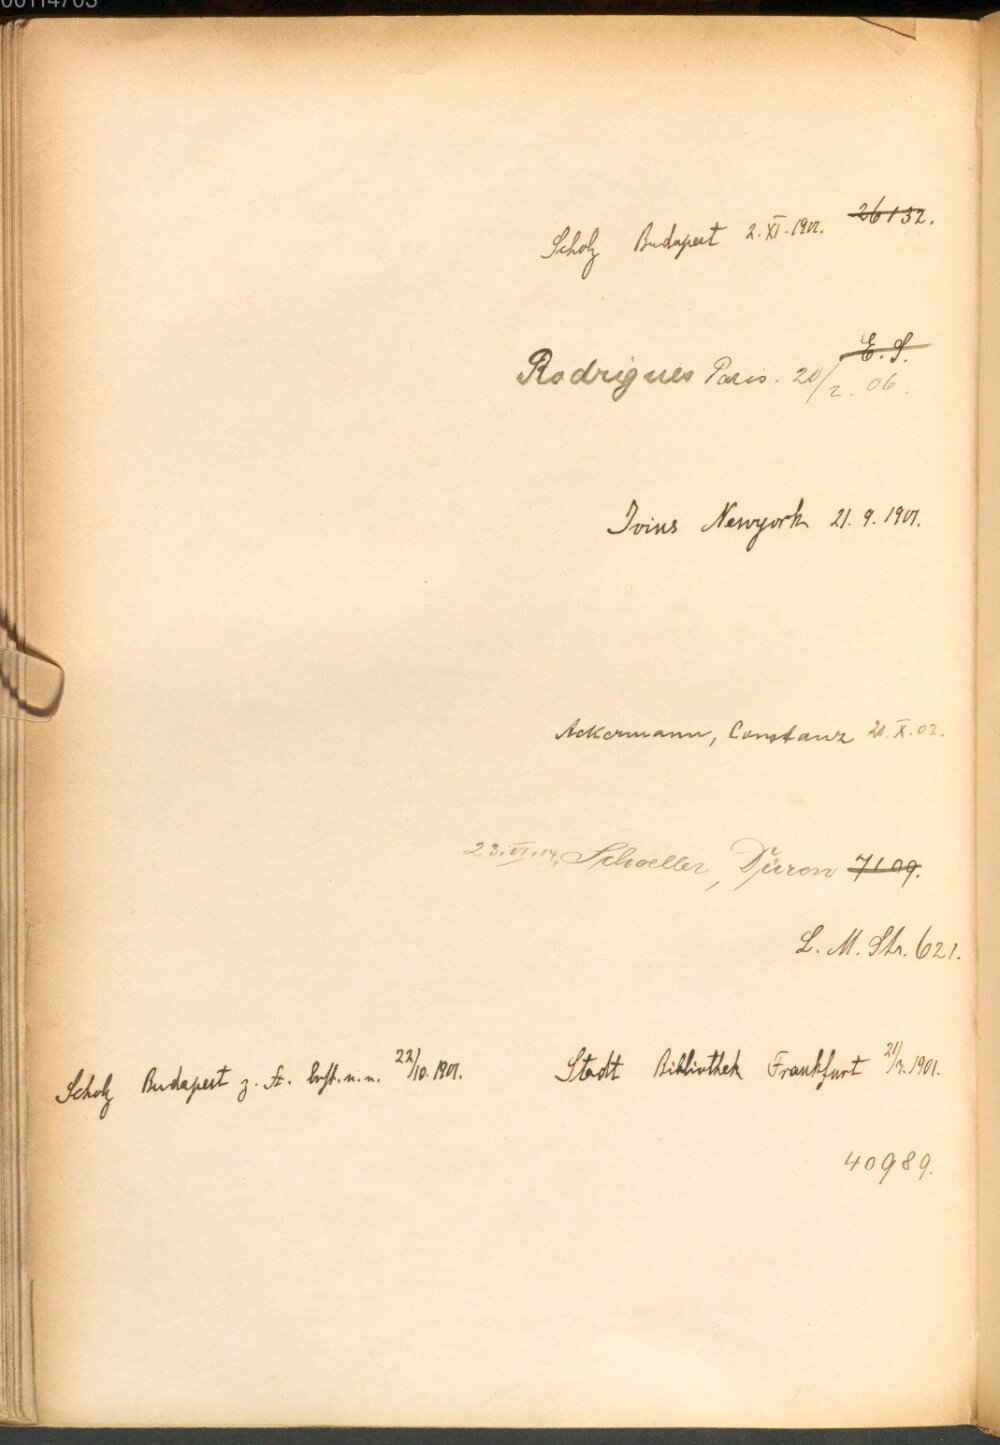 00114703
Scholz Budapest 2. XI. 1901. 26132.
E. S.
Rodrigues Paris. 20/2. 06.
Ivins Newyork 21. 9. 1901.
Ackermann, Constanz 21. X. 02.
23. VI. 14, Schoeller, Düren 7109.
L. M. Str. 621.
Scholz Budapest z. A. 22/10. 1901.
Stadt Bibliothek Frankfurt 21/3. 1901.
40989.